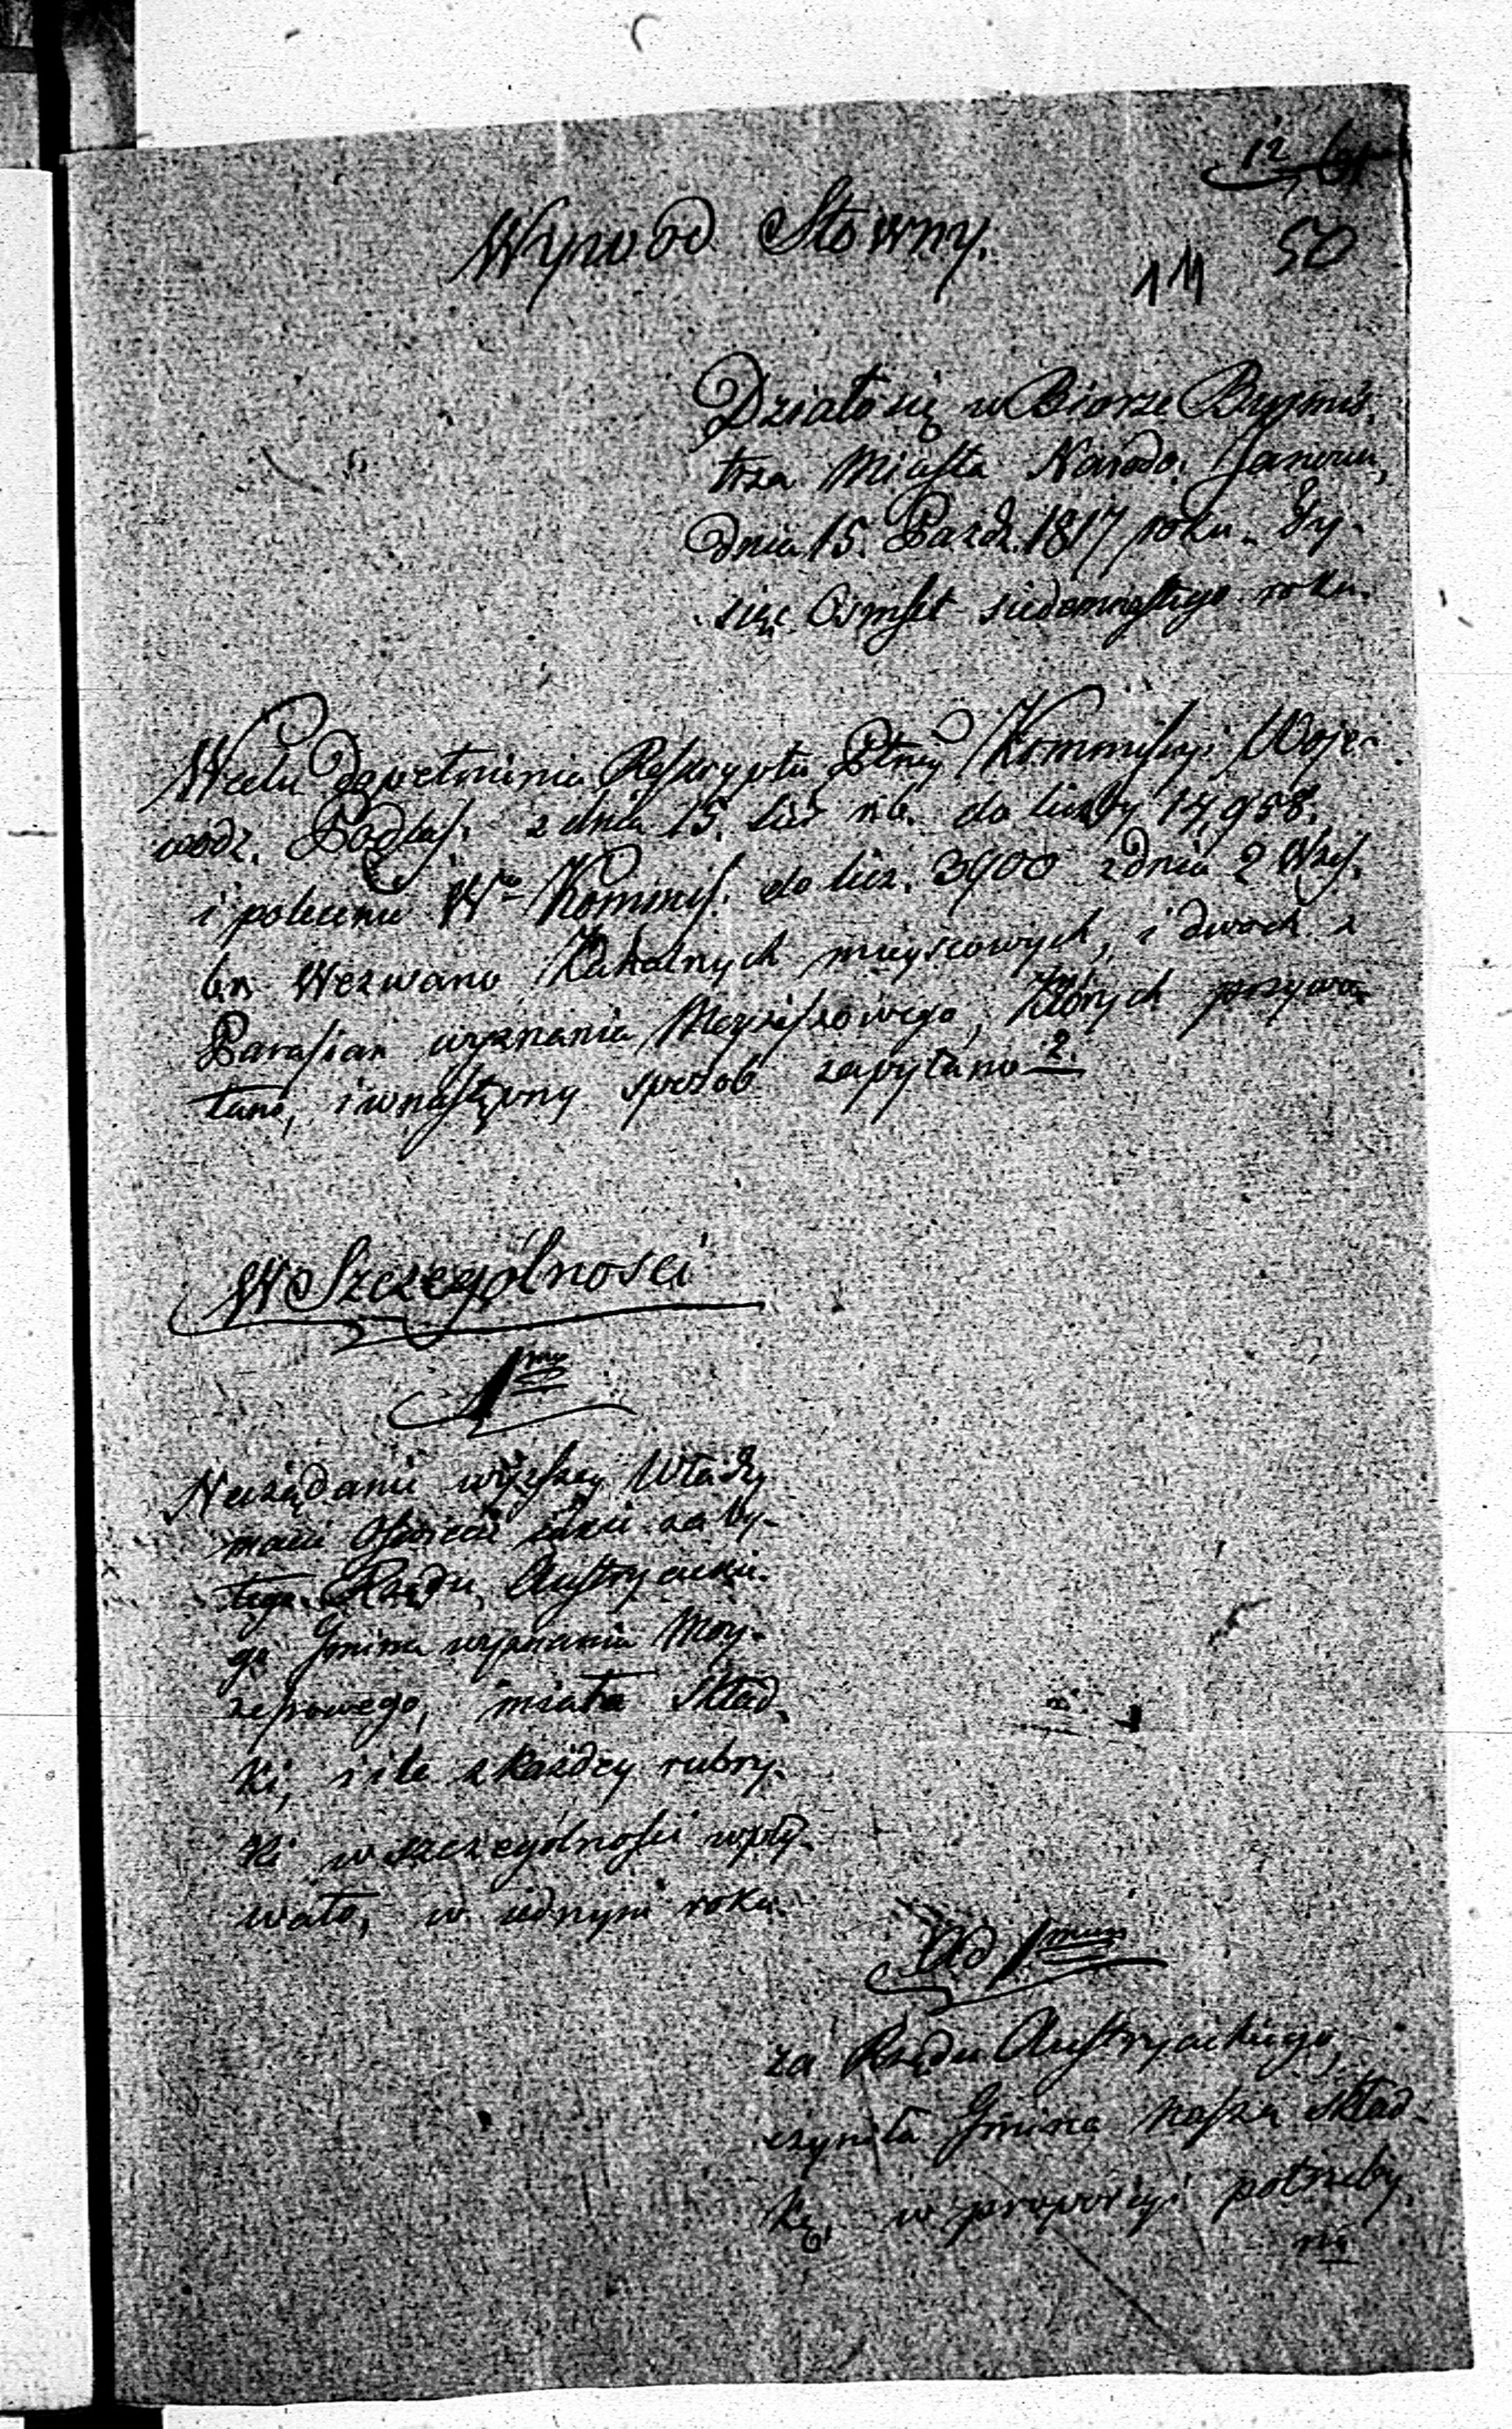 50
111
Wywod Słowny.
Działo się w Biorze Burmis-
trza Miasta Narodo. Janowa,
dnia 15. Pazdz. 1817 roku. Ty-
siąc Osmset siedemnastego roku.
W celu dopełnienia Reskryptu Kommissyi Woje-
wodz. Podlas. z dnia 15. do liczby 14,958.
i polecenia Wo Kommis. do licz. 3900 z dnia 2 Wrzes.
b.r. Wezwano Kahalnych mieyscowych, i dwoch z
Parafian wyznania Moyżeszowego, których przywo-
łano, i w nastęvny sposob zapytano
W Szczególności
1mo
Na żądanie wyższey Władzy
macie jakie za by-
tego Rządu Austryackie-
go Gmina wyznania Moy-
żeszowego, miała Skład-
ki, i ile z każdey rubry-
ki w szczególności wpły-
wało, w iednym roku.
Ad 1mum
za Rządu Austryackiego,
czyniła Gmina nasza Skład-
kę, w proporcyi potrzeby